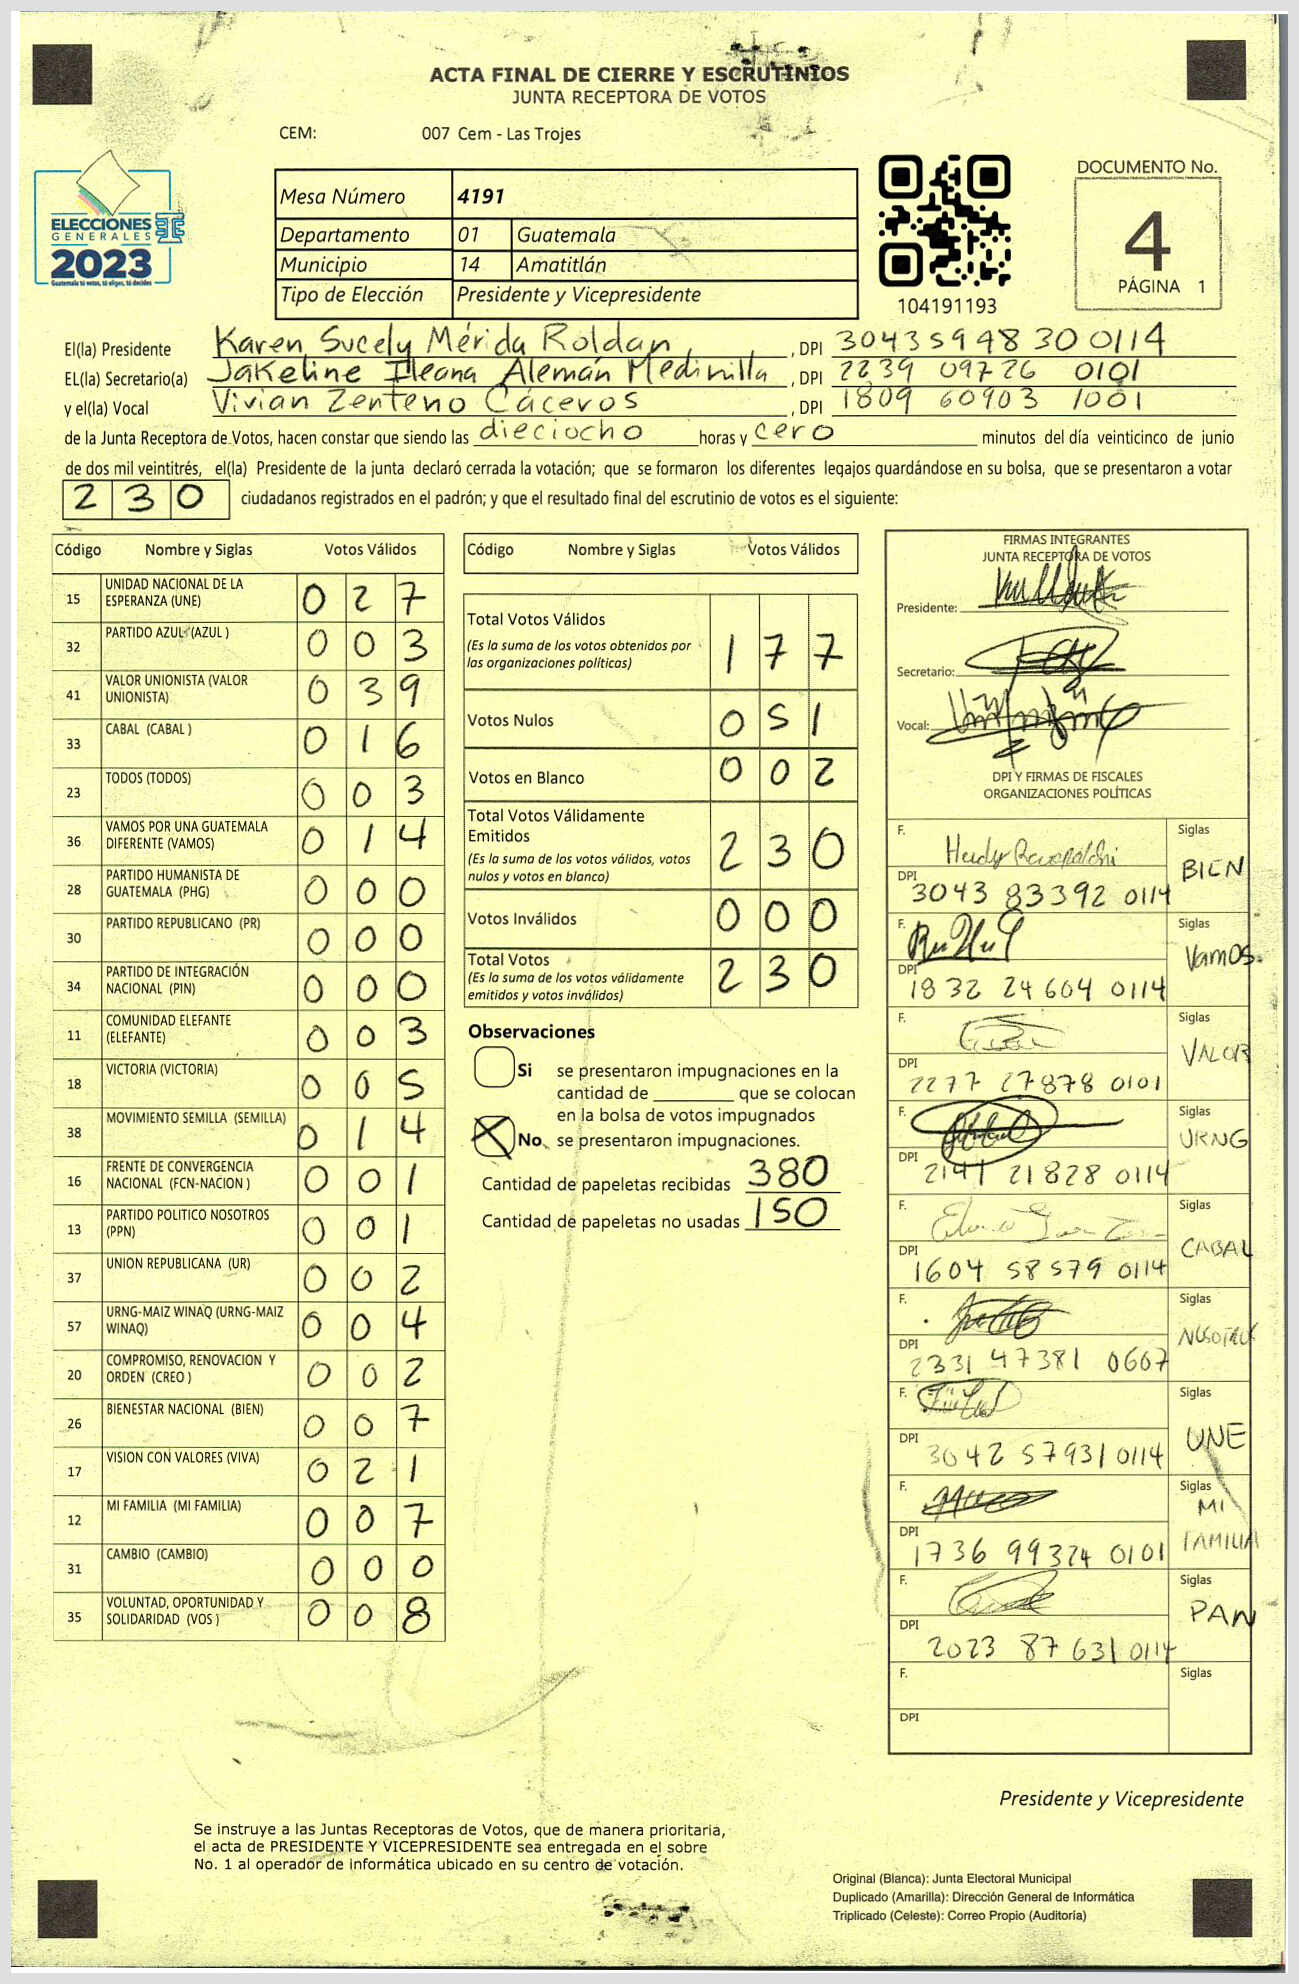 ACTA FINAL DE CIERRE Y ESCRUTINIOS
JUNTA RECEPTORA DE VOTOS
CEM: 007 Cem - Las Trojes
ELECCIONES
GENERALES
2023
Guatemala tú votas, tú eliges, tú decides
Mesa Número 4191
Departamento 01 Guatemala
Municipio 14 Amatitlán
Tipo de Elección Presidente y Vicepresidente
104191193
DOCUMENTO No.
4
PÁGINA 1
El(la) Presidente Karen Sucely Mérida Roldan, DPI 3043599830 0114
EL(la) Secretario(a) Jakeline Ileana Alemán Medinilla, DPI 2239 09726 0101
y el(la) Vocal Vivian Zenteno Cáceros, DPI 1809 60903 1001
de la Junta Receptora de Votos, hacen constar que siendo las dieciocho horas y cero minutos del día veinticinco de junio
de dos mil veintitrés, el(la) Presidente de la junta declaró cerrada la votación; que se formaron los diferentes legajos guardándose en su bolsa, que se presentaron a votar
230 ciudadanos registrados en el padrón; y que el resultado final del escrutinio de votos es el siguiente:
Código Nombre y Siglas Votos Válidos
15 UNIDAD NACIONAL DE LA ESPERANZA (UNE) 027
32 PARTIDO AZUL (AZUL ) 003
41 VALOR UNIONISTA (VALOR UNIONISTA) 039
33 CABAL (CABAL ) 016
23 TODOS (TODOS) 003
36 VAMOS POR UNA GUATEMALA DIFERENTE (VAMOS) 014
28 PARTIDO HUMANISTA DE GUATEMALA (PHG) 000
30 PARTIDO REPUBLICANO (PR) 000
34 PARTIDO DE INTEGRACIÓN NACIONAL (PIN) 000
11 COMUNIDAD ELEFANTE (ELEFANTE) 003
18 VICTORIA (VICTORIA) 005
38 MOVIMIENTO SEMILLA (SEMILLA) 014
16 FRENTE DE CONVERGENCIA NACIONAL (FCN-NACION ) 001
13 PARTIDO POLITICO NOSOTROS (PPN) 001
37 UNION REPUBLICANA (UR) 002
57 URNG-MAIZ WINAQ (URNG-MAIZ WINAQ) 004
20 COMPROMISO, RENOVACION Y ORDEN (CREO ) 002
26 BIENESTAR NACIONAL (BIEN) 007
17 VISION CON VALORES (VIVA) 021
12 MI FAMILIA (MI FAMILIA) 007
31 CAMBIO (CAMBIO) 000
35 VOLUNTAD, OPORTUNIDAD Y SOLIDARIDAD (VOS ) 008
Código Nombre y Siglas Votos Válidos
Total Votos Válidos 177
(Es la suma de los votos obtenidos por
las organizaciones políticas)
Votos Nulos 051
Votos en Blanco 002
Total Votos Válidamente
Emitidos 230
(Es la suma de los votos válidos, votos
nulos y votos en blanco)
Votos Inválidos 000
Total Votos 230
(Es la suma de los votos válidamente
emitidos y votos inválidos)
Observaciones
Si se presentaron impugnaciones en la
cantidad de ________ que se colocan
en la bolsa de votos impugnados
X No se presentaron impugnaciones.
Cantidad de papeletas recibidas 380
Cantidad de papeletas no usadas 150
FIRMAS INTEGRANTES
JUNTA RECEPTORA DE VOTOS
Presidente:
Secretario:
Vocal:
DPI Y FIRMAS DE FISCALES
ORGANIZACIONES POLÍTICAS
F. Siglas BIEN
DPI 3043 83392 0114
F. Siglas Vamos.
DPI 1832 24604 0114
F. Siglas VALOR
DPI 2277 27878 0101
F. Siglas URNG
DPI 2141 21828 0114
F. Siglas CABAL
DPI 1604 58579 0114
F. Siglas NOSOTROS
DPI 2331 47381 0607
F. Siglas UNE
DPI 3042 57931 0114
F. Siglas MI FAMILIA
DPI 1736 99324 0101
F. Siglas PAN
DPI 2023 87631 0114
F. Siglas
DPI
Presidente y Vicepresidente
Se instruye a las Juntas Receptoras de Votos, que de manera prioritaria,
el acta de PRESIDENTE Y VICEPRESIDENTE sea entregada en el sobre
No. 1 al operador de informática ubicado en su centro de votación.
Original (Blanca): Junta Electoral Municipal
Duplicado (Amarilla): Dirección General de Informática
Triplicado (Celeste): Correo Propio (Auditoría)